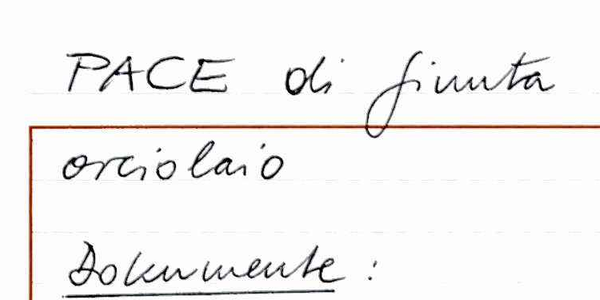 PACE di Giunta
orciolaio
Dokumente: